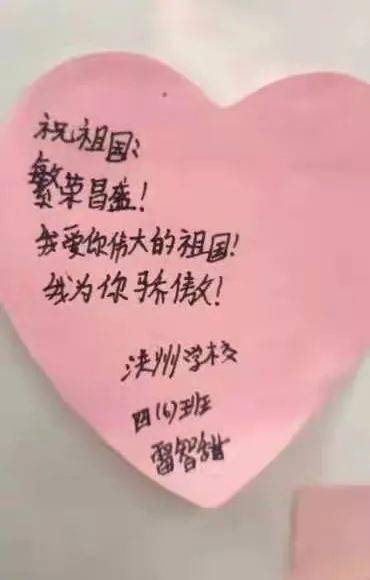 祝祖国：
繁荣昌盛！
我爱你伟大的祖国！
我为你骄傲！
洪州学校
四（6）班
雷智甜